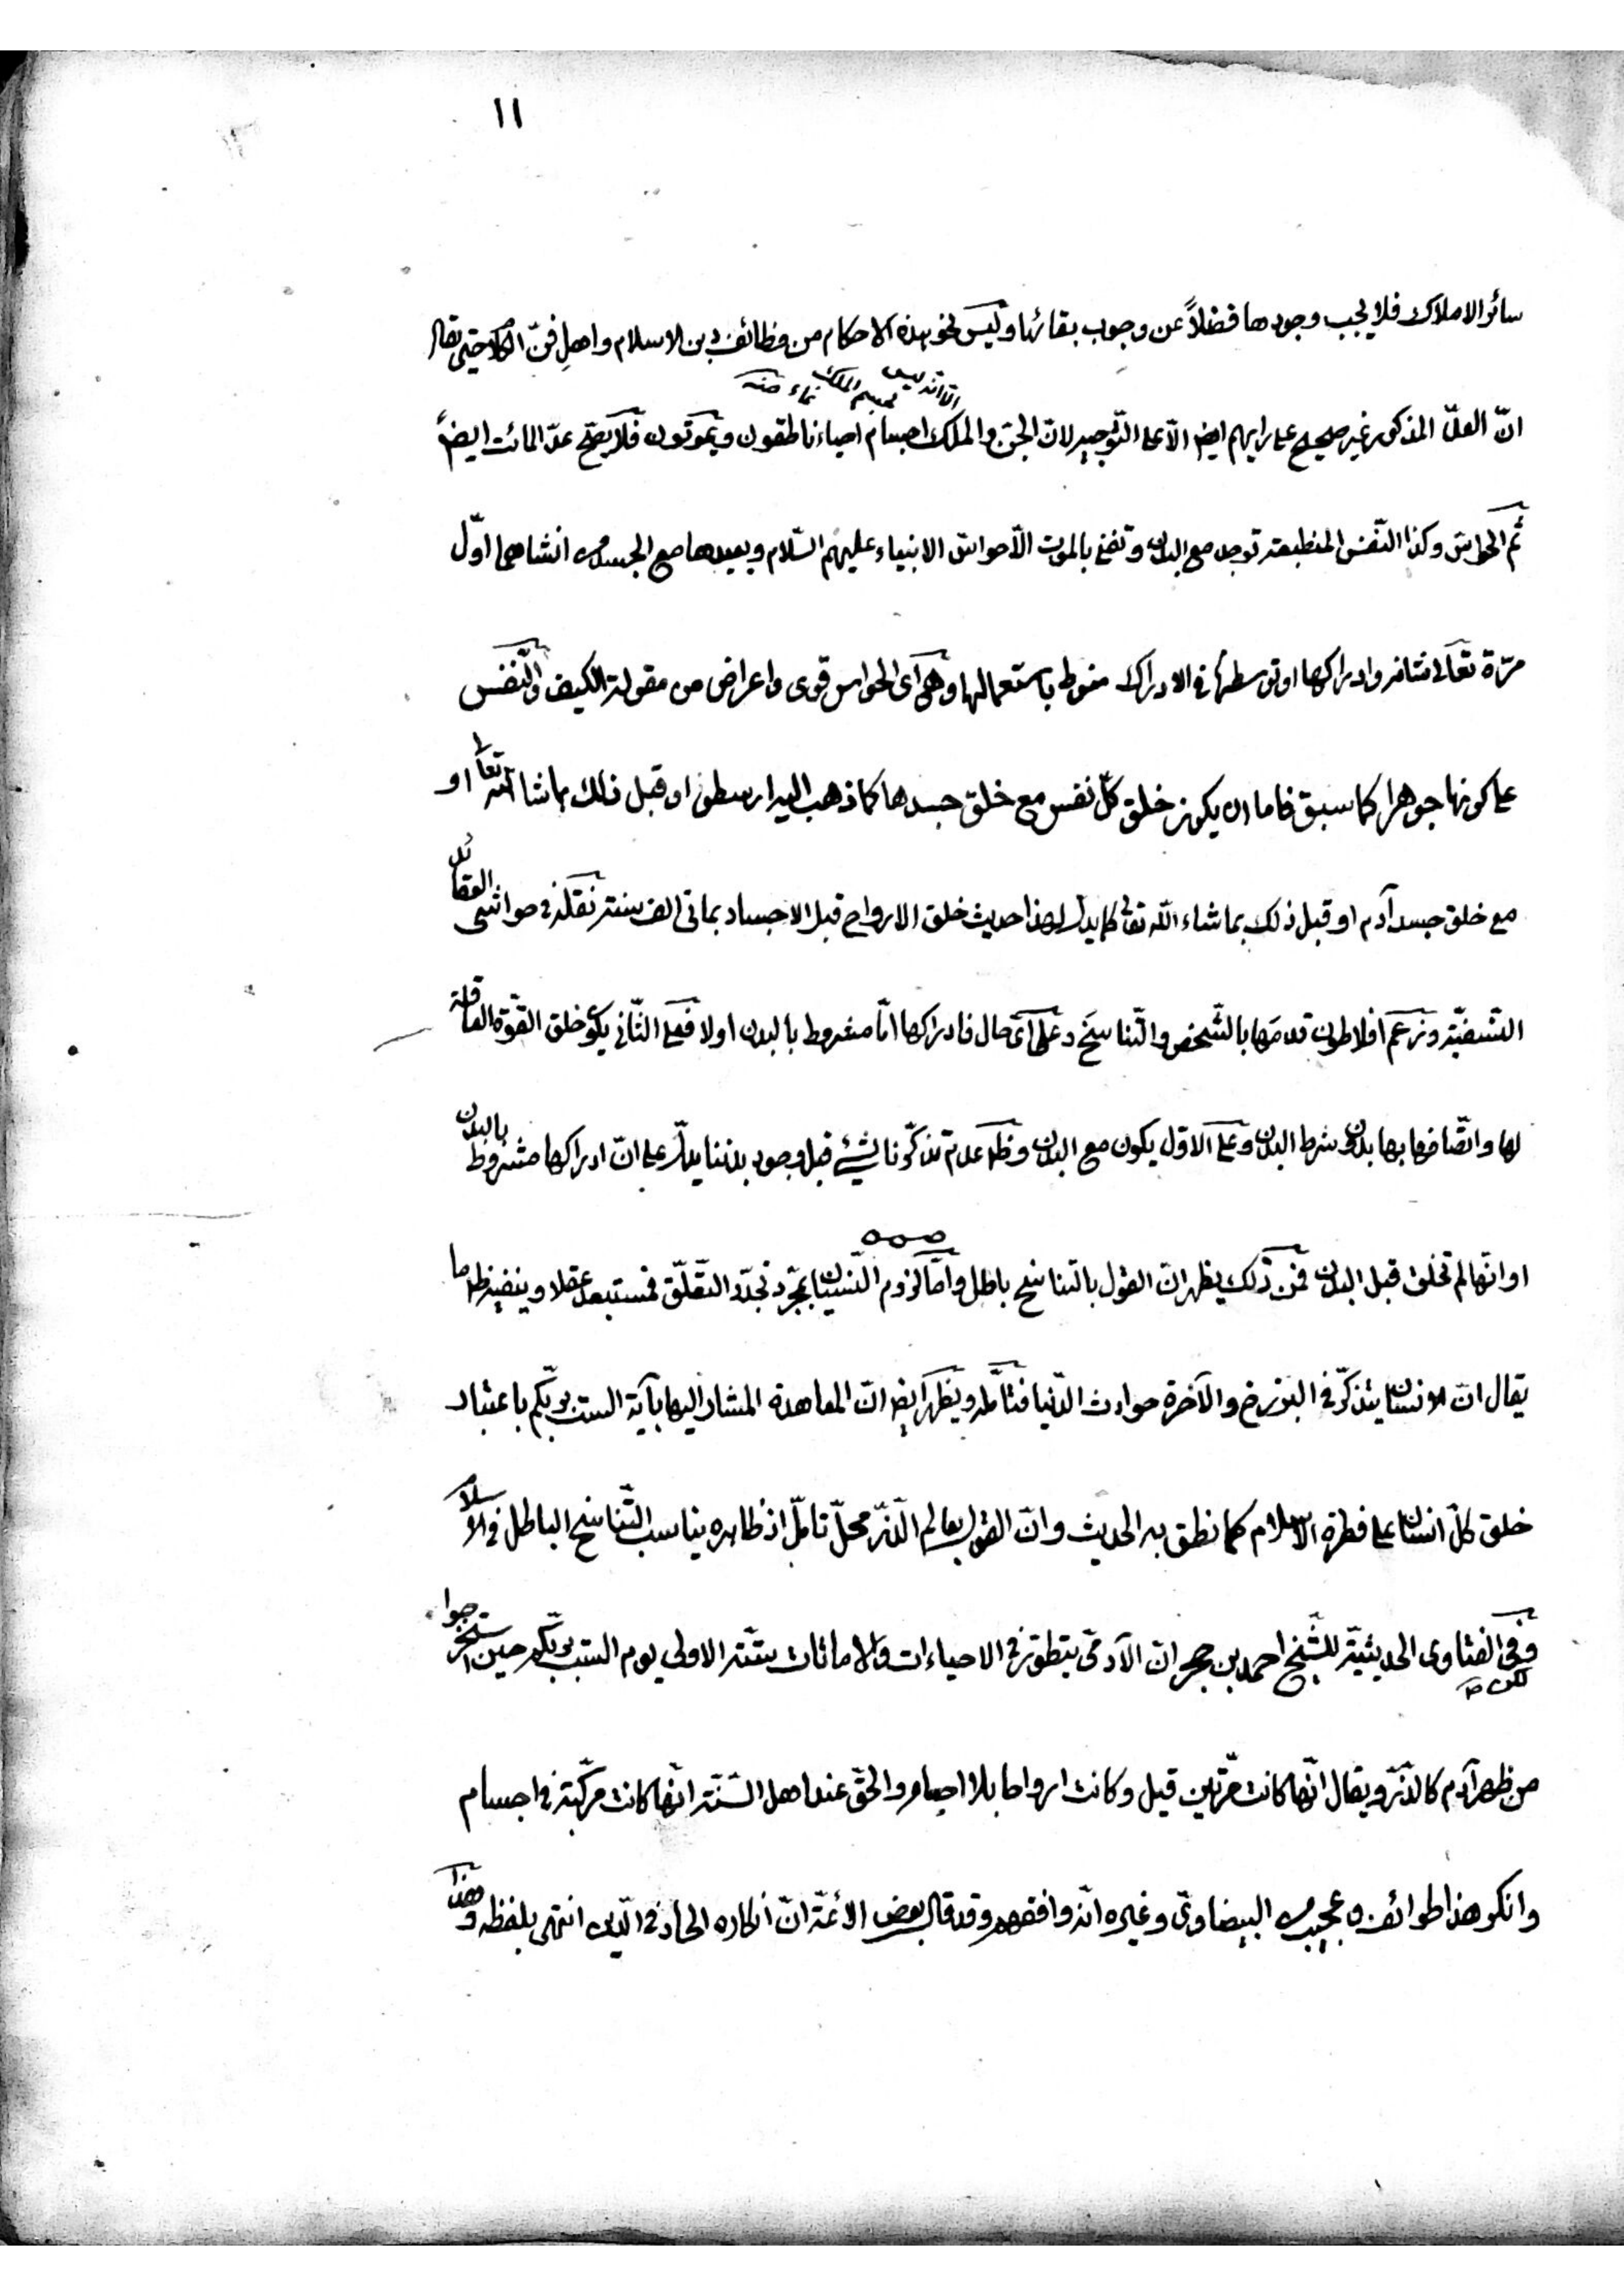 ١١
سائر الاملاك فلا يجب وجودها فضلاً عن وجوب بقائها وليس نحو هذه الاحكام من وظائف دين الاسلام واهل فنّ الكلام حتى يقال
الا انه ليس لجسم الملك نماء منه
انّ العدّ المذكور غير صحيح على رايهم ايضا الّا على التّوجيه لانّ الجنّ والملك اجسام احياء ناطقون ويموتون فلا يصحّ عدّ المائت ايضاً
ثم الحواسّ وكذا النّفس المنطبعة توجد مع البدن وتفنى بالموت الّا حواسّ الانبياء عليهم السّلام ويعيدها مع الجسد من انشاهما اوّل
مرّة تعالى شانه وادراكها او توسطها في الادراك منوط باستعمالها وهي اى الحواس قوى واعراض من مقولة الكيف والنّفس
على كونها جوهرا كما سبق فاما ان يكون خلق كلّ نفس مع خلق جسدها كما ذهب اليه ارسطو او قبل ذلك بما شاء الله تعالى او
مع خلق جسد آدم او قبل ذلك بما شاء الله تعالى كما يدل لهذا حديث خلق الارواح قبل الاجساد بمائى الف سنة نقله في حواشى العقائد
النّسفيّة وزعم افلاطون قدمها بالشّخص والتّناسخ وعلى اى حال فادراكها امّا مشروط بالبدن اولا فعلى الثّانى يكون خلق القوّة العاقلة
لها واتّصافها بها بدون شرط البدن وعلى الاوّل يكون مع البدن وظ عدم تذكّرنا لشيء قبل وجود بدننا يدلّ على انّ ادراكها مشروط بالبدن
او انها لم تخلق قبل البدن فمن ذلك يظهر انّ القول بالتناسخ باطل وامّا لزوم النّسيان بمجرّد تجدّد التّعلّق فمستبعد عقلا وينفيه ظ ما
يقال انّ الانسان يتذكّر في البرزخ والآخرة حوادث الدّنيا فتامّله ويظهر ايضا انّ المعاهدة المشار اليها بآية الست بربّكم باعتبار
خلق كلّ انسان على فطرة الاسلام كما نطق به الحديث وانّ القول بعالم الذّرّ محلّ تامّل اذ ظاهره يناسب التّناسخ الباطل في الاسلام
لكن صح
وفي الفتاوى الحديثيّة للشّيخ احمد بن حجر انّ الآدمىّ يتطوّر في الاحياءات والاماتات ستّة الاولى يوم الست بربّكم حين استخرجوا
من ظهر آدم كالذّرّ ويقال انّها كانت مرّتين قيل وكانت ارواحا بلا اجسام والحقّ عند اهل السّنّة انّها كانت مركّبة في اجسام
وانكر هذا طوائف وعجيب من البيضاوىّ وغيره انّه وافقهم وقد قال بعض الائمّة انّ انكاره الحاد في الدّين انتهى بلفظه وهذا